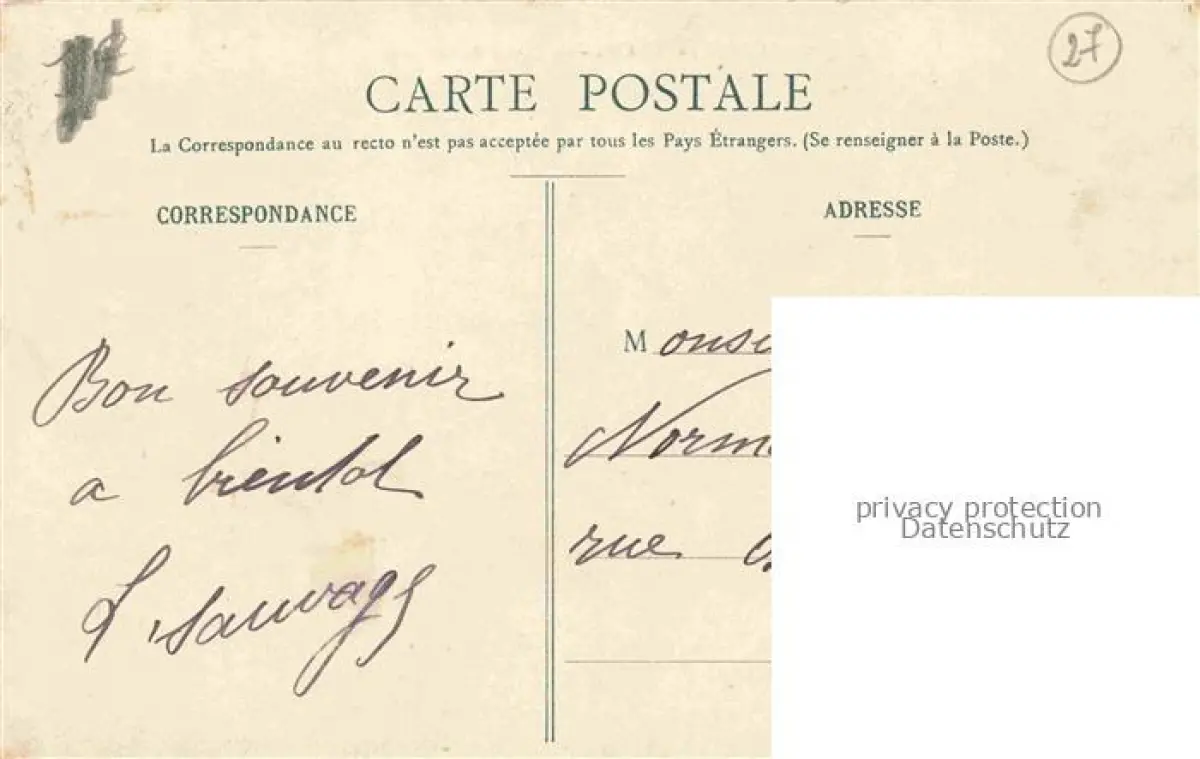 27
CARTE POSTALE
La Correspondance au recto n'est pas acceptée par tous les Pays Étrangers. (Se renseigner à la Poste.)
CORRESPONDANCE
Bon souvenir
a bientot
L sauvage
ADRESSE
Monsi
Norm
rue
privacy protection
Datenschutz